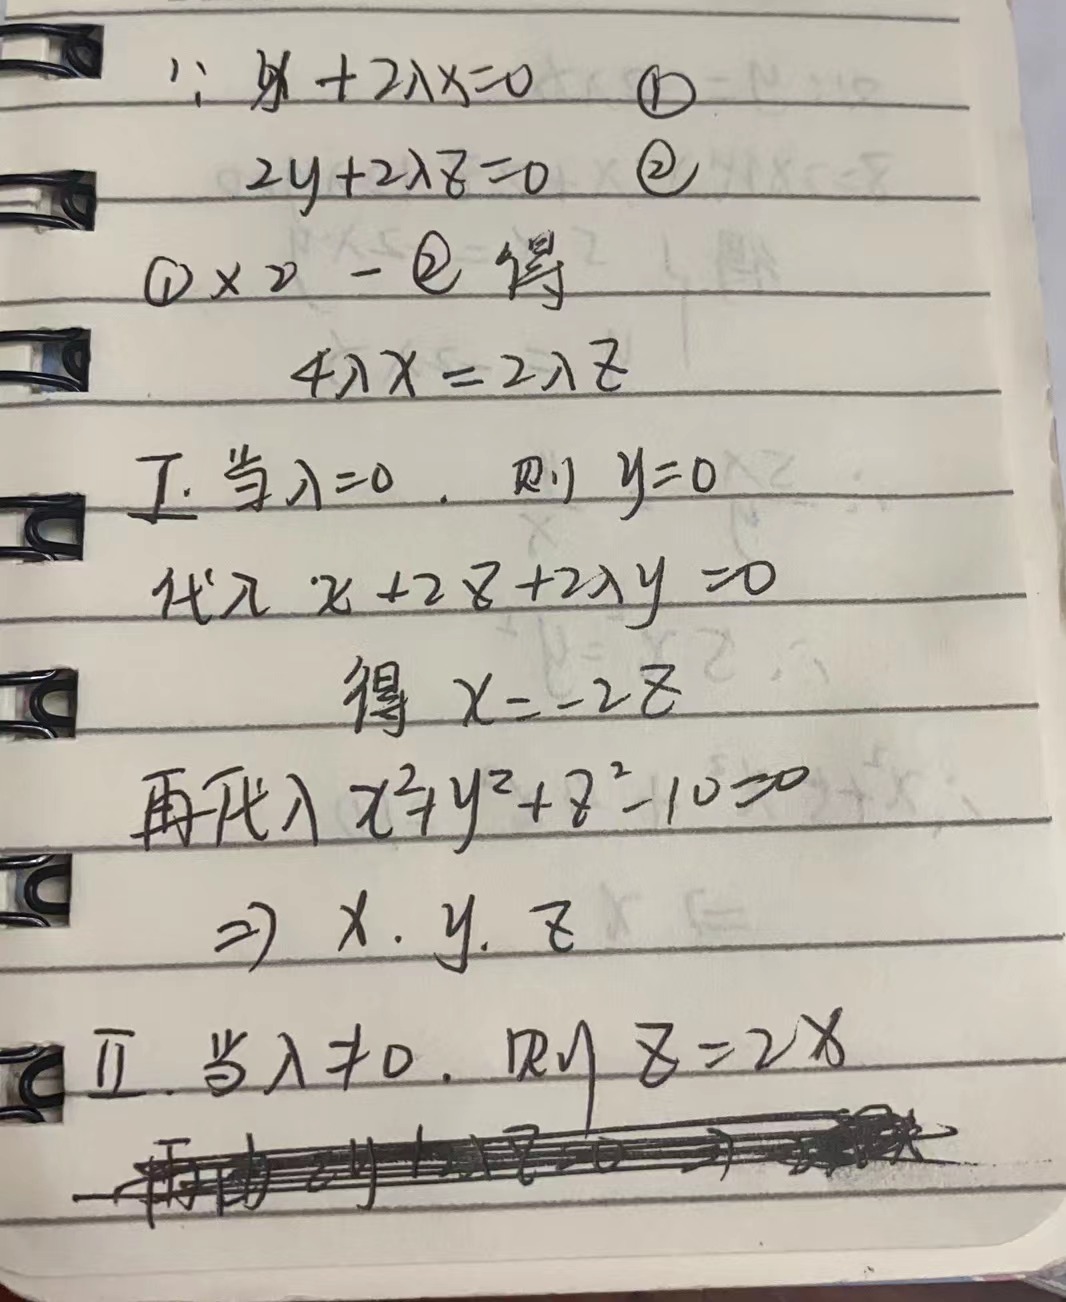 ∵ y + 2λx = 0 ①
2y + 2λz = 0 ②
① × 2 - ② 得
4λx = 2λz
Ⅰ. 当 λ = 0 . 则 y = 0
代入 x + 2z + 2λy = 0
得 x = -2z
再代入 x² + y² + z² - 10 = 0
⇒ x . y . z
Ⅱ. 当 λ ≠ 0 . 则 z = 2x